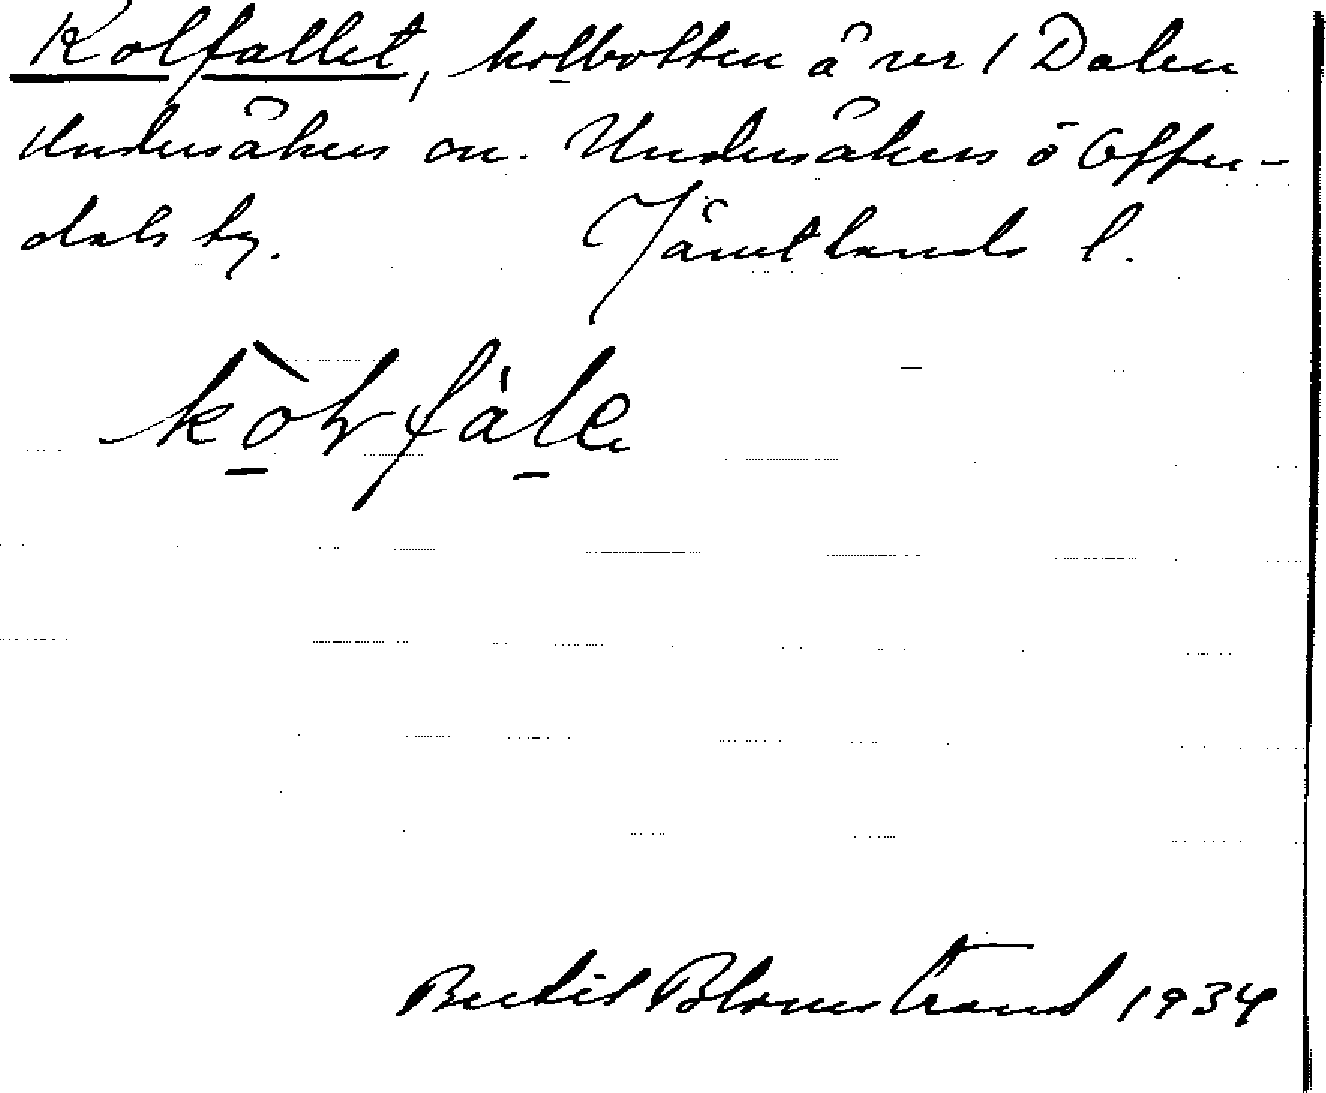 Kolfallet, kolbotten å ner / Dalen
Undersåkers on. Undersåkers ö Offer-
dals by. Jämtlands l.
Bertil Blomstrand 1934